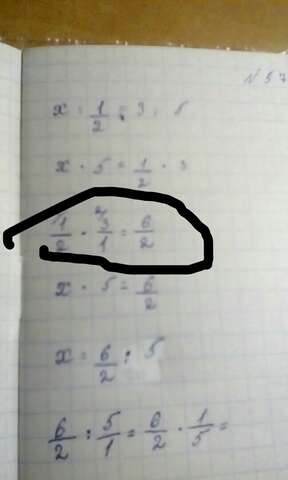 N 57
x : 1/2 = 3 : 5
x · 5 = 1/2 · 3
1/2 · 3/1 = 6/2
x · 5 = 6/2
x = 6/2 : 5
6/2 : 5/1 = 6/2 · 1/5 =